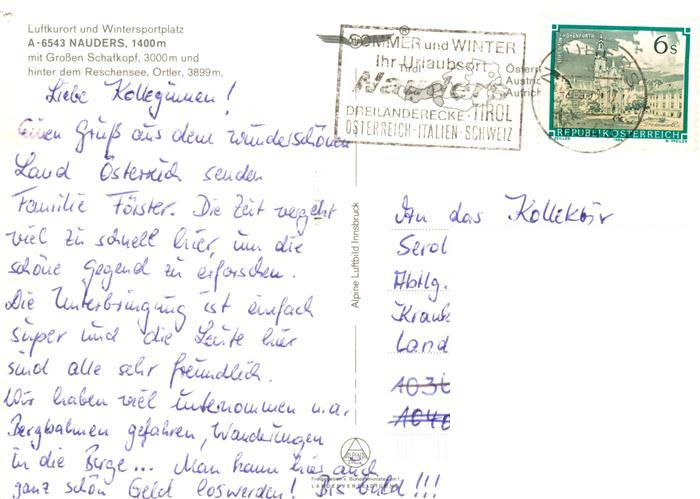 Luftkurort und Wintersportplatz
A-6543 NAUDERS, 1400m
mit Großen Schafkopf, 3000m und
hinter dem Reschensee, Ortler, 3899m,
Tirol Österr
Austria
Autrich
SOMMER und WINTER
Ihr Urlaubsort
Nauders
DREILÄNDERECKE-TIROL
ÖSTERREICH-ITALIEN-SCHWEIZ
6 s
REPUBLIK ÖSTERREICH
Liebe Kolleginnen!
Einen Gruß aus dem wunderschönen
Land Österreich senden
Familie Förster. Die Zeit vergeht
viel zu schnell hier, um die
schöne Gegend zu erforschen.
Die Unterbringung ist einfach
super und die Leute hier
sind alle sehr freundlich.
Wir haben viel unternommen u.a.
Bergbahnen gefahren, Wanderungen
in die Berge... Man kann hier auch
ganz schön Geld loswerden! Bis bald!!!
Alpine Luftbild Innsbruck
An das Kollektiv
Serol
Abtlg.
Krank
Land
1036
1040